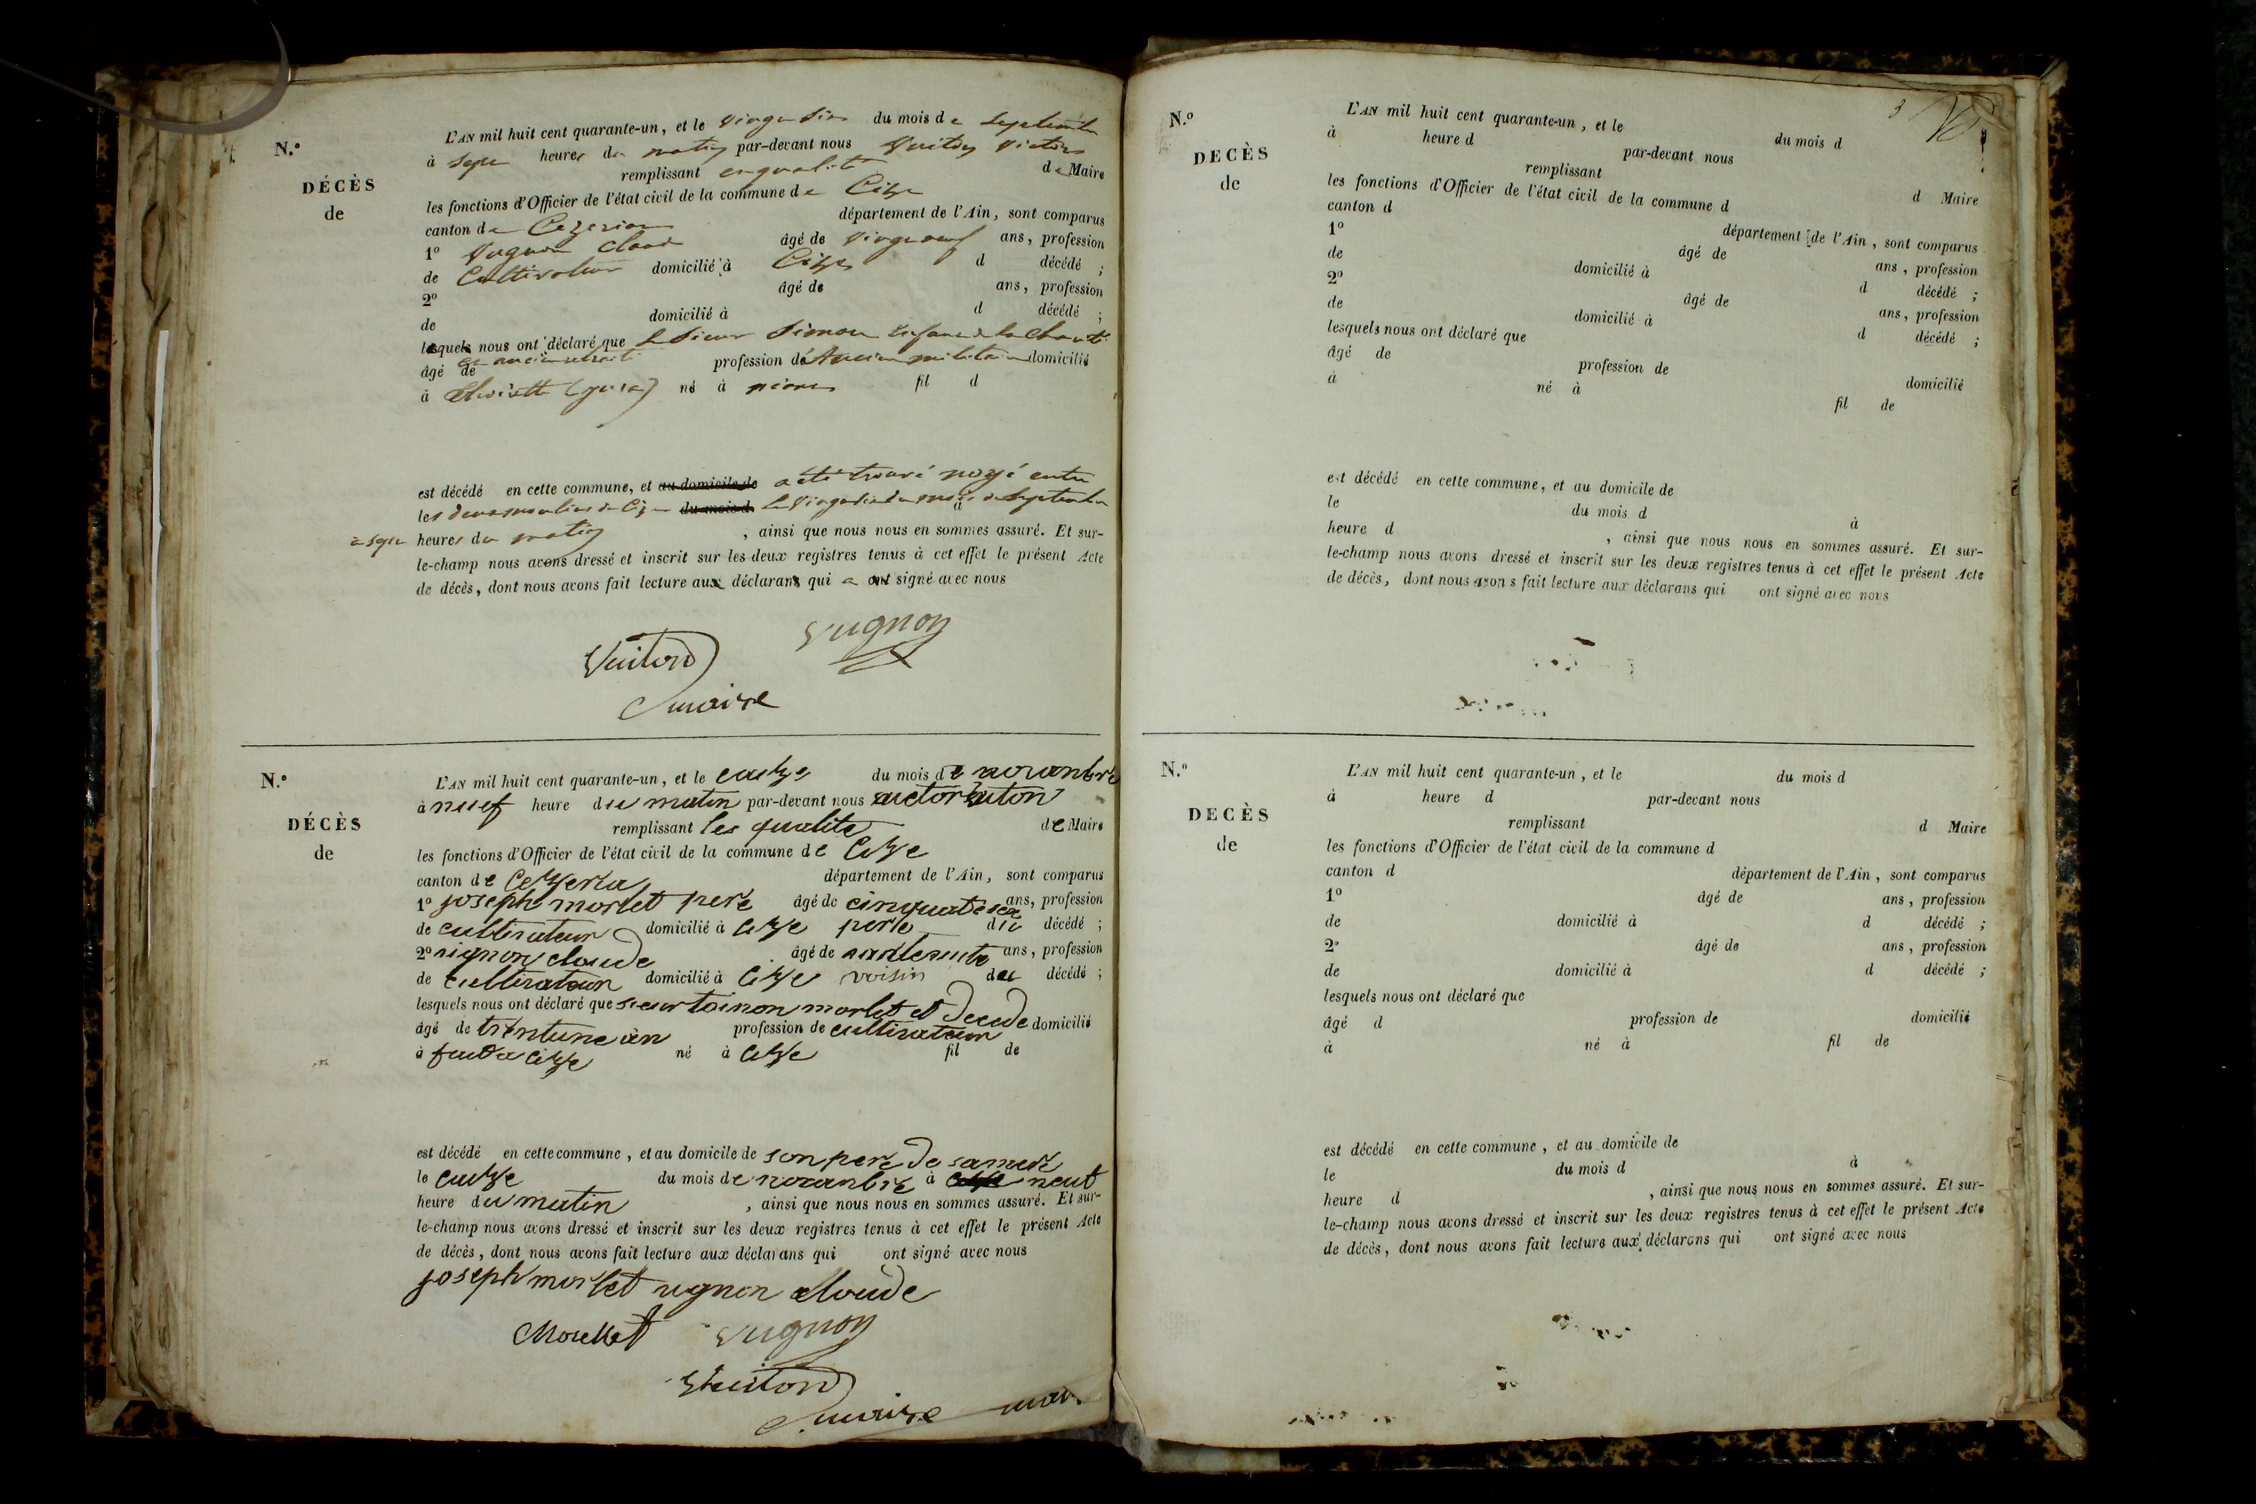 N.º
DÉCÈS
de
L'AN mil huit cent quarante-un, et le du mois de Septembre
à sept heures du matin par-devant nous Vuiton Victor
remplissant en qualité de Maire
les fonctions d'Officier de l'état civil de la commune de Cize
canton de Ceyzeria département de l'Ain, sont comparus
1º Vugnon Claude âgé de vingt neuf ans, profession
de Cultivateur domicilié à Cize d décédé ;
2º âgé de ans, profession
de domicilié à d décédé ;
lesquels nous ont déclaré que le Sieur Simon enfant de la charité
âgé de profession d'Ancien militaire domicilié
à (jura) né à fil d
est décédé en cette commune, et au domicile de a été trouvé noyé entre
les deux moulins de Cize du mois d le du mois de Septembre à
a sept heures du matin , ainsi que nous nous en sommes assuré. Et sur-
le-champ nous avons dressé et inscrit sur les deux registres tenus à cet effet le présent Acte
de décès, dont nous avons fait lecture aux déclarans qui a ont signé avec nous
Vugnon
Vuiton
maire
N.º
DÉCÈS
de
L'AN mil huit cent quarante-un, et le du mois de novanbre
à neuf heure du matin par-devant nous victor vuiton
remplissant les qualite de Maire
les fonctions d'Officier de l'état civil de la commune de Cize
canton de Ceyzeria département de l'Ain, sont comparus
1º joseph morlet pere âgé de ans, profession
de cultivateur domicilié à Cize pere du décédé ;
2º vignon claude âgé de ans, profession
de cultivateur domicilié à Cize voisin du décédé ;
lesquels nous ont déclaré que sieur toinon morlet et decede
âgé de trintune an profession de cultivateur domicilié
à Cize né à Cize fil de
est décédé en cette commune, et au domicile de son pere de
le du mois de novanbre à neut
heure du matin , ainsi que nous nous en sommes assuré. Et sur-
le-champ nous avons dressé et inscrit sur les deux registres tenus à cet effet le présent Acte
de décès, dont nous avons fait lecture aux déclarans qui ont signé avec nous
joseph morlet vignon cloude
Vugnon
Vuiton
maire
N.º
DECÈS
de
L'AN mil huit cent quarante-un, et le du mois d
à heure d par-devant nous
remplissant d Maire
les fonctions d'Officier de l'état civil de la commune d
canton d département de l'Ain, sont comparus
1º âgé de ans, profession
de domicilié à d décédé ;
2º âgé de ans, profession
de domicilié à d décédé ;
lesquels nous ont déclaré que
âgé de profession de domicilié
à né à fil de
est décédé en cette commune, et au domicile de
le du mois d à
heure d , ainsi que nous nous en sommes assuré. Et sur-
le-champ nous avons dressé et inscrit sur les deux registres tenus à cet effet le présent Acte
de décès, dont nous avons fait lecture aux déclarans qui ont signé avec nous
N.º
DECÈS
de
L'AN mil huit cent quarante-un, et le du mois d
à heure d par-devant nous
remplissant d Maire
les fonctions d'Officier de l'état civil de la commune d
canton d département de l'Ain, sont comparus
1º âgé de ans, profession
de domicilié à d décédé ;
2º âgé de ans, profession
de domicilié à d décédé ;
lesquels nous ont déclaré que
âgé d profession de domicilié
à né à fil de
est décédé en cette commune, et au domicile de
le du mois d à
heure d , ainsi que nous nous en sommes assuré. Et sur-
le-champ nous avons dressé et inscrit sur les deux registres tenus à cet effet le présent Acte
de décès, dont nous avons fait lecture aux déclarans qui ont signé avec nous